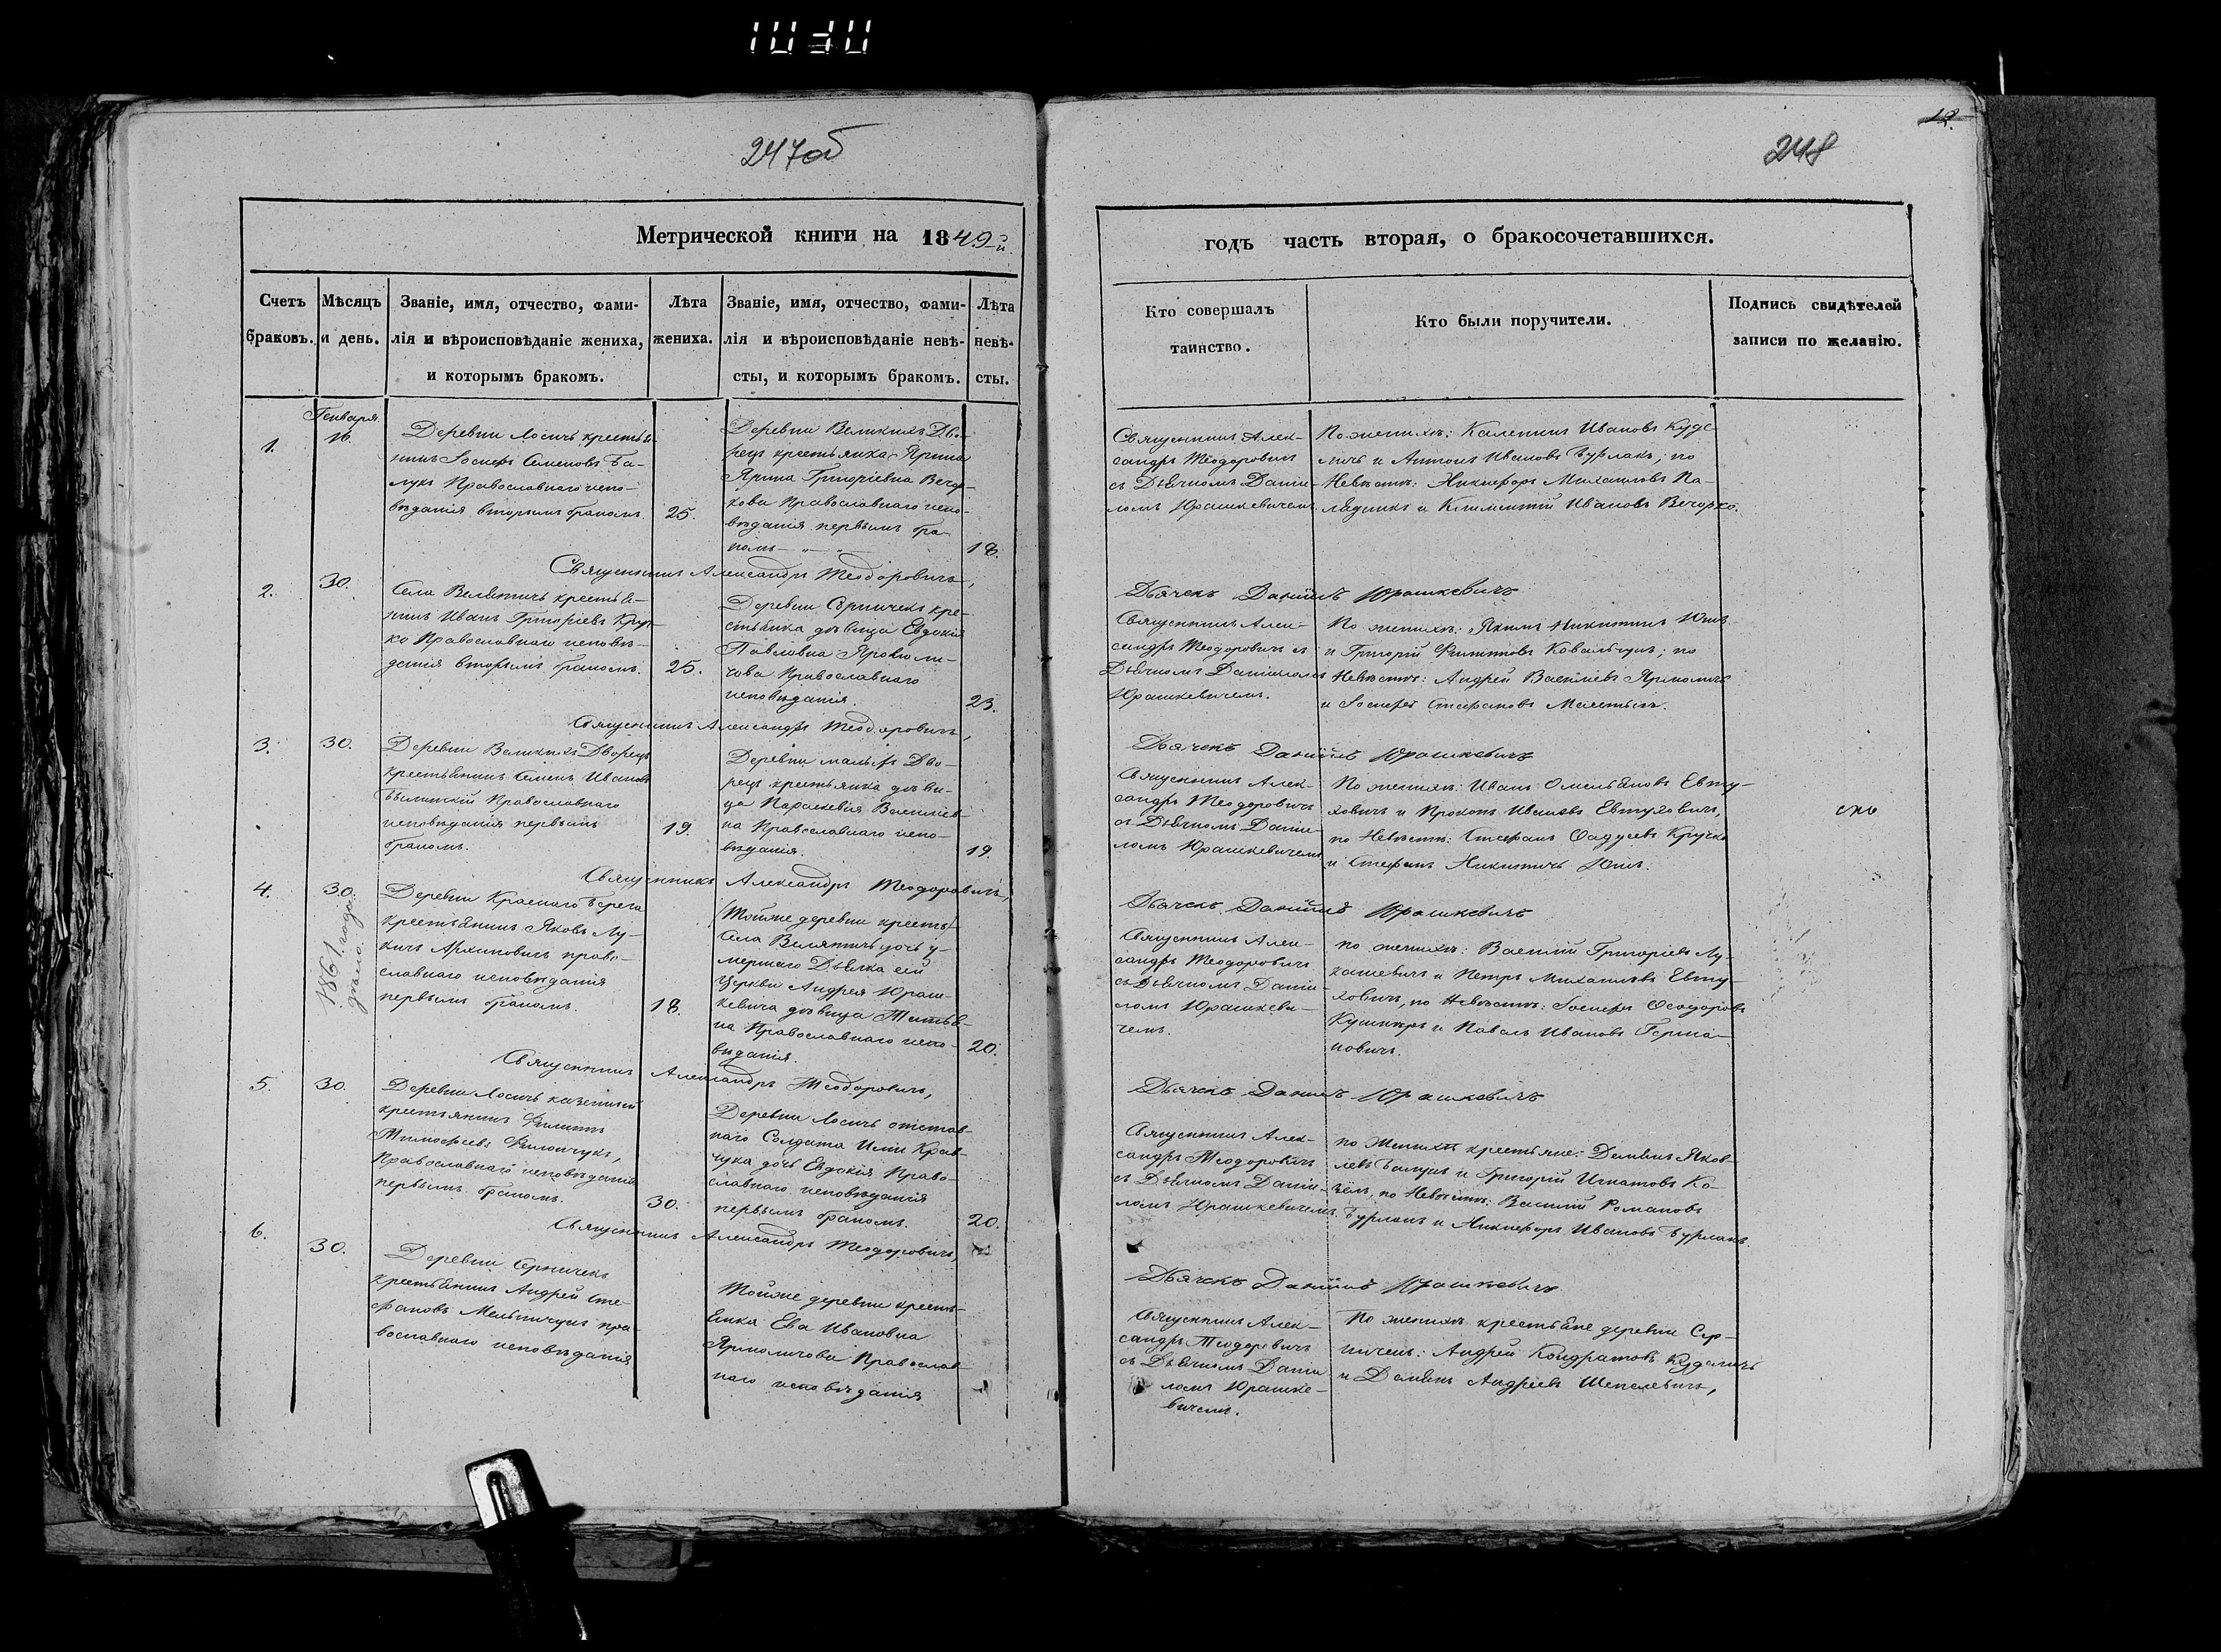 247об
248
12.
Метрической книги на 1849-й
годъ часть вторая, о бракосочетавшихся.
Счетъ браковъ.
Мѣсяцъ и день.
Званіе, имя, отчество, фами-
лія и вѣроисповѣданіе жениха,
и которымъ бракомъ.
Лѣта
жениха.
Званіе, имя, отчество, фами-
лія и вѣроисповѣданіе невѣ-
сты, и которымъ бракомъ.
Лѣта
невѣ-
сты.
Кто совершалъ
таинство.
Кто были поручители.
Подпись свидѣтелей
записи по желанію.
1.
Генваря
16.
Деревни Лосичъ крестья-
нинъ Іосифъ Семеновъ Ба-
лукъ Православнаго испо-
вѣданія вторымъ бракомъ.
25.
Деревни Великихъ Дво-
рецъ крестьянка Ярина
Ярина Григоріевна Вечор-
кова Православнаго испо-
вѣданія первымъ бра-
комъ
18.
Священникъ Алек-
сандръ Теодоровичъ
съ Дьячкомъ Дании-
ломъ Юрашкевичемъ.
По женихѣ: Каленикъ Ивановъ Куде-
личъ и Антонъ Ивановъ Бурлакъ; по
Невѣстѣ: Никифоръ Михаиловъ Па-
лядникъ и Климентій Ивановъ Вечорко.
Священникъ Александръ Теодоровичъ,
Дьячекъ Даніилъ Юрашкевичъ
2.
30.
Села Велятичъ крестья-
нинъ Иванъ Григоріевъ
ко Православнаго исповѣ-
данія вторымъ бракомъ.
25.
Деревни Сѣрничекъ кре-
стьянка дѣвица Евдокія
Павловна Ярмоли-
чова Православнаго
исповѣданія.
23.
Священникъ Алек-
сандръ Теодоровичъ съ
Дьячкомъ Данииломъ
Юрашкевичемъ.
По женихѣ: Якимъ Никитинъ
и Григорій Филиповъ Ковальчукъ; по
Невѣстѣ: Андрей Василіевъ Ярмоличъ
и Іосифъ Стефановъ
Священникъ Александръ Теодоровичъ,
Дьячекъ Даніилъ Юрашкевичъ
3.
30.
Деревни Великихъ Дворецъ
крестьянинъ Семенъ Ивановъ
Былинскій Православнаго
исповѣданія первымъ
бракомъ.
19.
Деревни малыхъ Дво-
рецъ крестьянка дѣви-
ца Параскевія Василіев-
на Православнаго испо-
вѣданія.
19.
Священникъ Алек-
сандръ Теодоровичъ
съ Дьячкомъ Дании-
ломъ Юрашкевичемъ
По женихѣ: Иванъ Омельяновъ Евту-
ховичъ и Прокопъ Ивановъ Евтуховичъ,
по Невѣстѣ: Стефанъ Фадеевъ Кручко
и Стефанъ Никитичъ
Священникъ Александръ Теодоровичъ,
Дьячекъ Даніилъ Юрашкевичъ
4.
30.
1861. года
дѣло.
Деревни Краснаго Берега
крестьянинъ Яковъ Лу-
кичъ Архиповичъ право-
славнаго исповѣданія
первымъ бракомъ.
18.
Тойже деревни кресть
Села Велятичъ дочь у-
мершаго Дьячка сей
Церкви Андрея Юраш-
кевича дѣвица Татья-
на Православнаго испо-
вѣданія.
20.
Священникъ Алек-
сандръ Теодоровичъ
съ Дьячкомъ Дании-
ломъ Юрашкеви-
чемъ.
по женихѣ: Василій Григоріевъ Лу-
кашевичъ и Петръ Михаиловъ Евту-
ховичъ, по Невѣстѣ: Іосифъ Феодоровъ
Кушниръ и Павелъ Ивановъ Герма-
новичъ.
Священникъ Александръ Теодоровичъ,
Дьячекъ Даніилъ Юрашкевичъ
5.
30.
Деревни Лосичъ казенный
крестьянинъ Филиппъ
Тимофеевъ Филончукъ,
Православнаго исповѣданія
первымъ бракомъ.
30.
Деревни Лосичъ отстав-
наго Солдата Ильи Крав-
чука дочь Евдокія Право-
славнаго исповѣданія
первымъ бракомъ.
20.
Священникъ Алек-
сандръ Теодоровичъ
съ Дьячкомъ Дании-
ломъ Юрашкевичемъ.
по Женихѣ крестьяне: Демьянъ Яков-
левъ Балукъ и Григорій Игнатовъ Ко-
по Невѣстѣ: Василій Романовъ
Бурлакъ и Никифоръ Ивановъ Бурлакъ.
Священникъ Александръ Теодоровичъ,
Дьячекъ Даніилъ Юрашкевичъ
6.
30.
Деревни Серничекъ
крестьянинъ Андрей Сте-
фановъ Мельничукъ пра-
вославнаго исповѣданія
Тойже деревни кресть-
янка Ева Ивановна
Ярмоличова Православ-
наго исповѣданія
Священникъ Алек-
сандръ Теодоровичъ
съ Дьячкомъ Дании
ломъ Юрашке-
вичемъ.
По женихѣ крестьяне деревни Сер-
ничекъ: Андрей Кондратовъ Куделичъ
и Демьянъ Андреевъ Шепелевичъ,